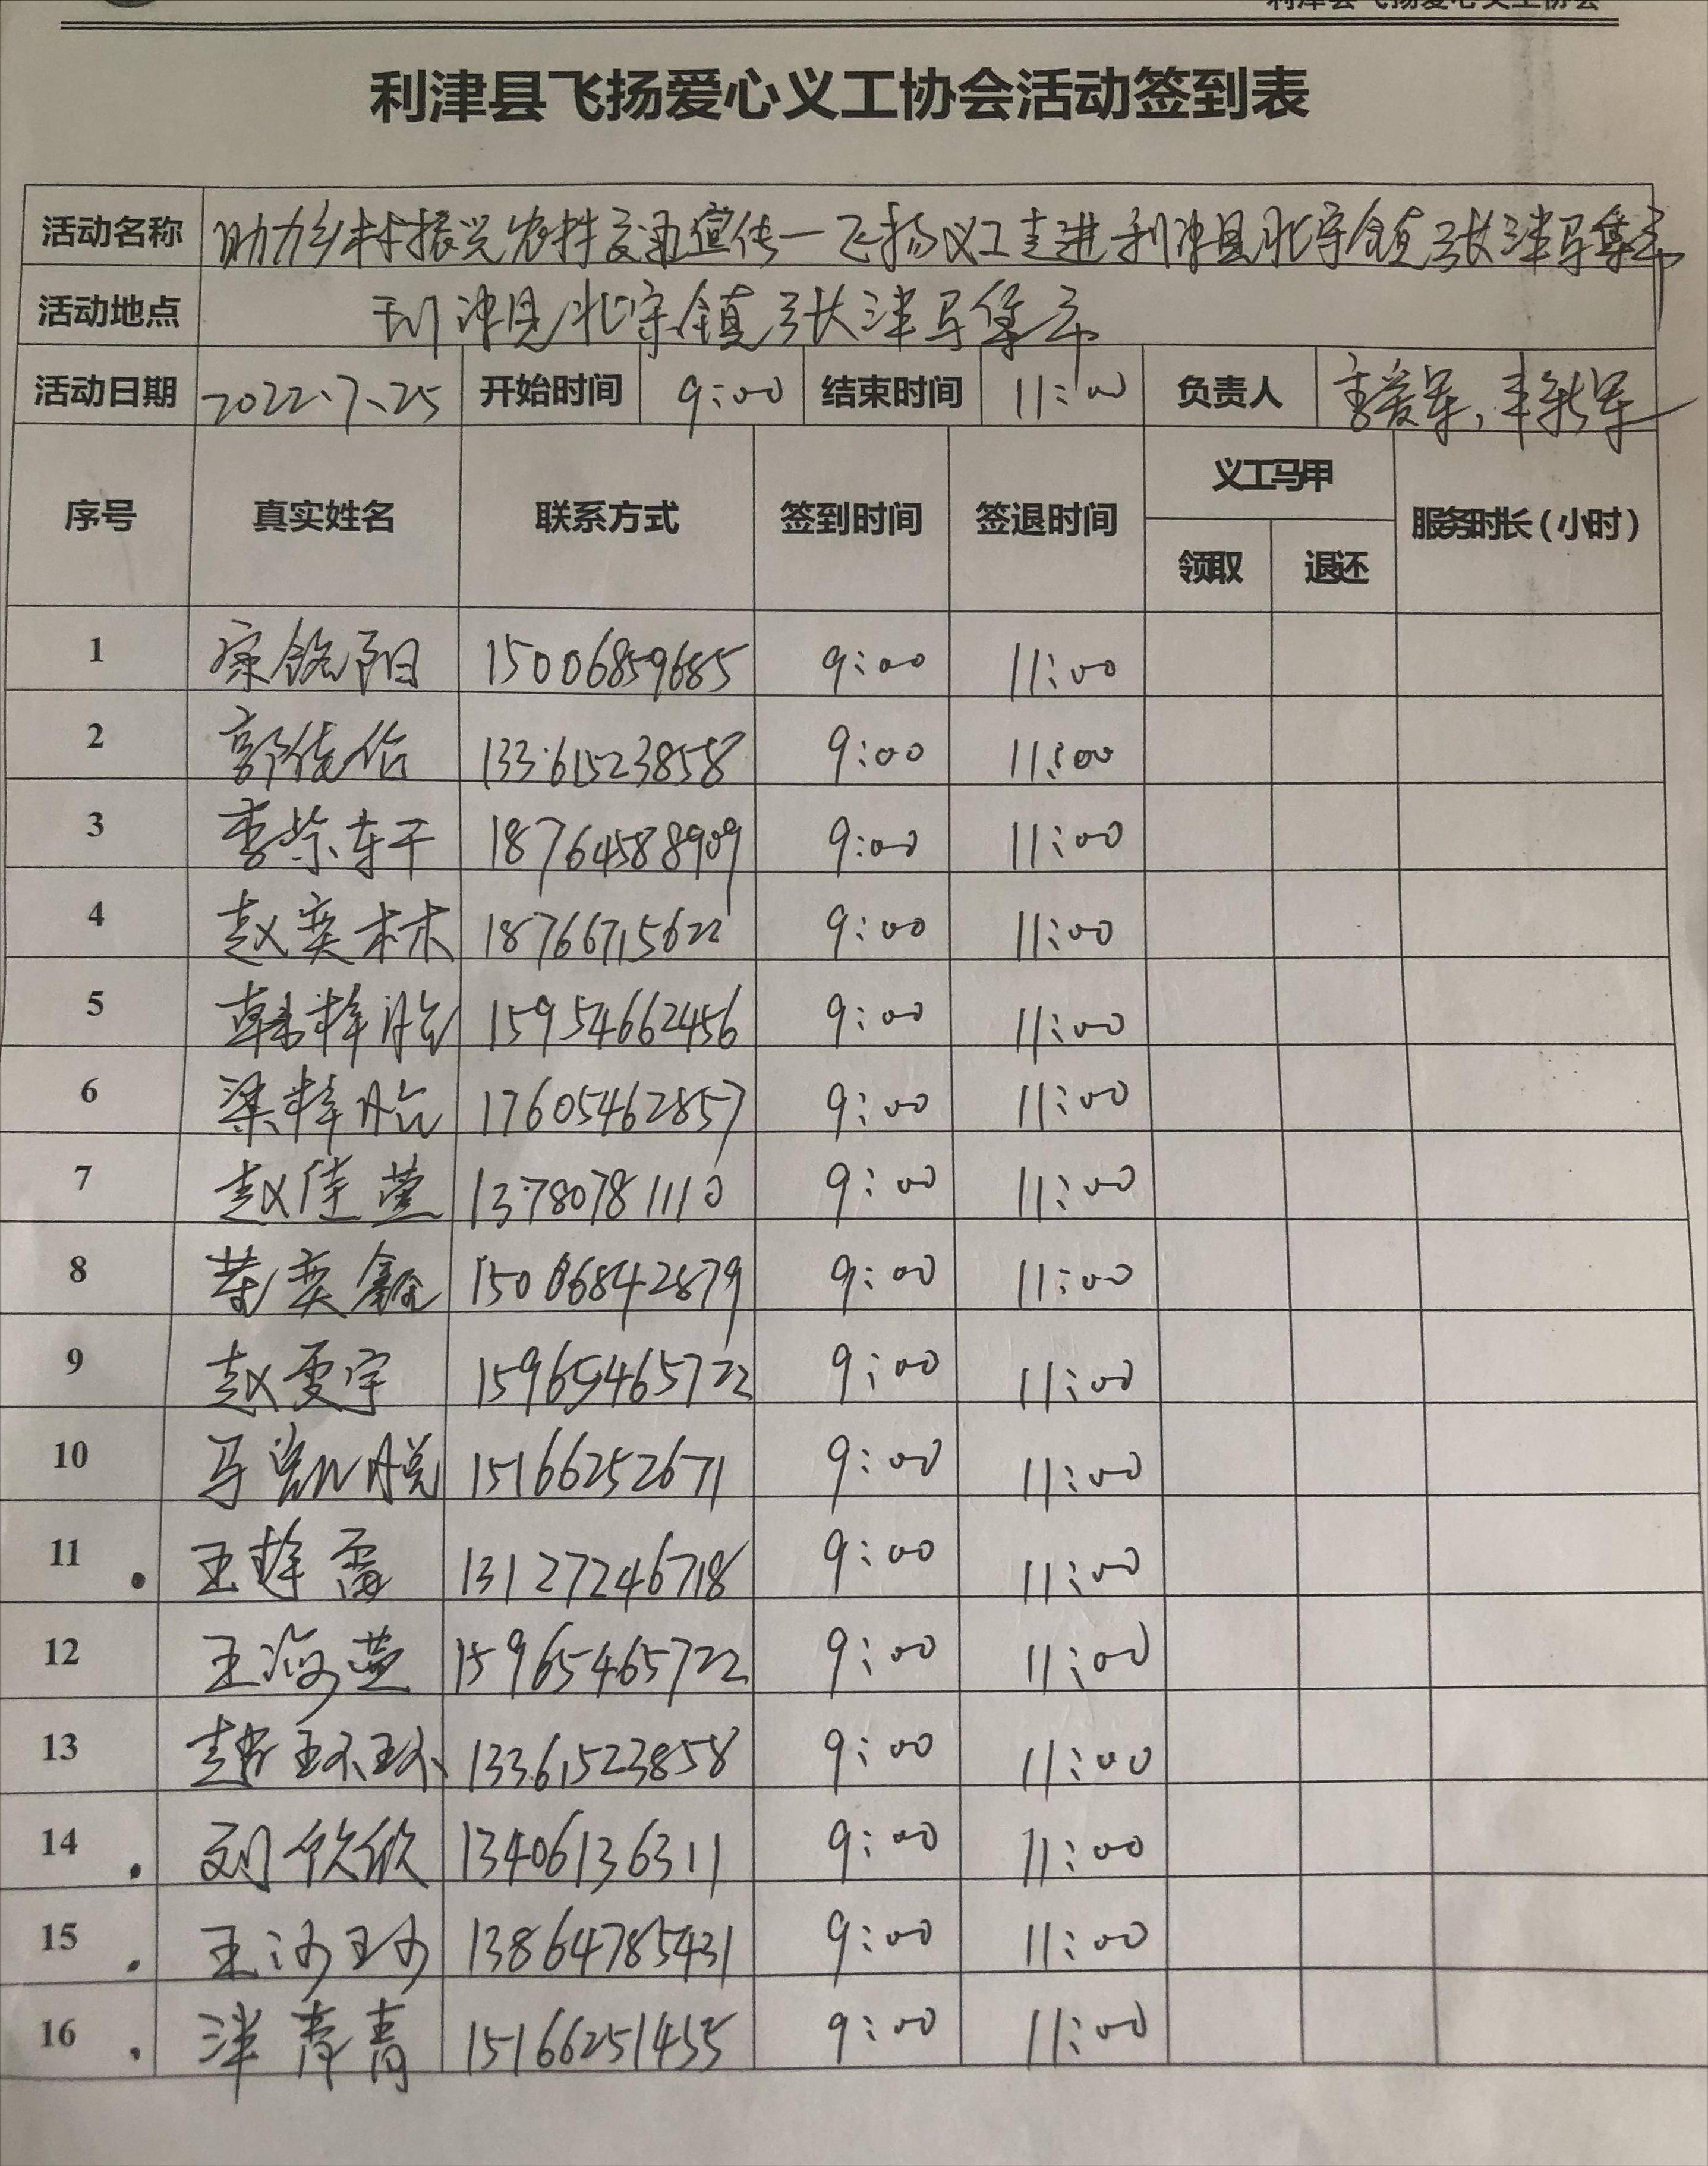 利津县飞扬爱心义工协会
利津县飞扬爱心义工协会活动签到表
活动名称 助力乡村振兴农村交通宣传一飞扬义工走进利津县北宋镇张潘马集市
活动地点 利津县北宋镇张潘马集市
活动日期 2022.7.25 开始时间 9:00 结束时间 11:00 负责人 李爱军、
序号 真实姓名 联系方式 签到时间 签退时间 义工马甲 服务时长(小时)
领取 退还
1 宋铭阳 15006859685 9:00 11:00
2 郭佳怡 13361523858 9:00 11:00
3 李紫轩 18764588909 9:00 11:00
4 赵奕林 18766715622 9:00 11:00
5 韩梓胎 15954662456 9:00 11:00
6 梁梓胎 17605462857 9:00 11:00
7 赵佳萱 13780781110 9:00 11:00
8 奕鑫 15006842879 9:00 11:00
9 赵雯宇 15965465722 9:00 11:00
10 马 15166252671 9:00 11:00
11 王梓 13127246718 9:00 11:00
12 王海萱 15965465722 9:00 11:00
13 赵环环 13361523858 9:00 11:00
14 刘欣欣 13406136311 9:00 11:00
15 王沙珍 13864785431 9:00 11:00
16 青青 15166251455 9:00 11:00